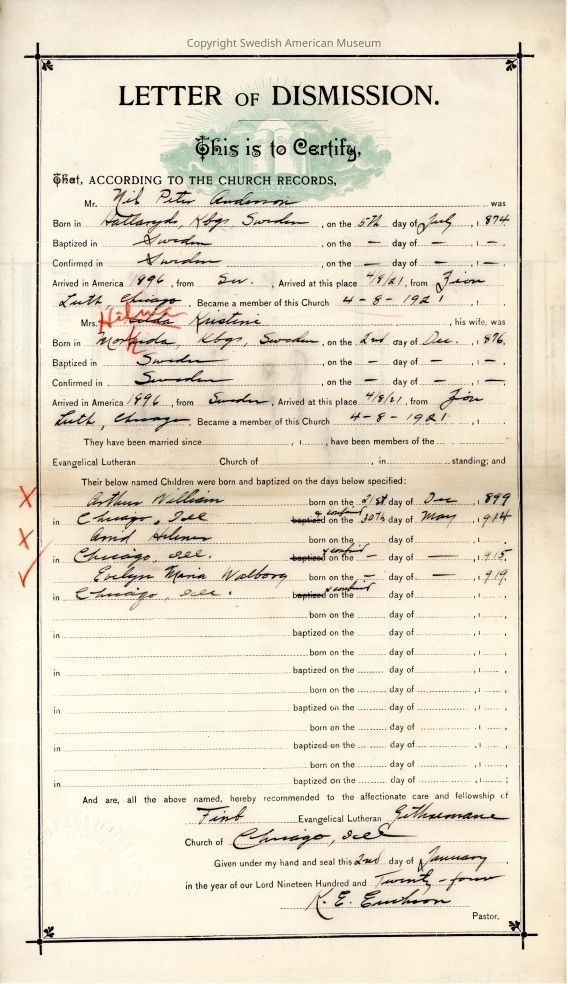 Copyright Swedish American Museum
LETTER OF DISMISSION.
This is to Certify,
That, ACCORDING TO THE CHURCH RECORDS,
Mr. Nils Peter Anderson was
Born in Hattaryd, Kbgs Sweden, on the 5th day of July, 1874
Baptized in Sweden, on the — day of —, 1 —,
Confirmed in Sweden, on the — day of —, 1 —,
Arrived in America 1896, from Sw., Arrived at this place 4/8/21, from Zion
Luth, Chicago. Became a member of this Church 4-8-1921
Mrs. Hilma Kristine, his wife, was
Born in Kbgs, Sweden, on the 2nd day of Dec., 1876,
Baptized in Sweden, on the — day of —, 1 —,
Confirmed in Sweden, on the — day of —, 1 —,
Arrived in America 1896, from Sweden, Arrived at this place 4/8/21, from Zion
Luth, Chicago. Became a member of this Church 4-8-1921
They have been married since , 1 , have been members of the
Evangelical Lutheran Church of , in standing; and
Their below named Children were born and baptized on the days below specified:
Arthur William born on the 21st day of Dec, 1899
& confird
in Chicago, Ill baptized on the 30th day of May, 1914
born on the day of , 1 ,
& confird
in Chicago, Ill. baptized on the — day of —, 1915.
Evelyn Maria Walborg born on the — day of —, 1919.
& confird
in Chicago, Ill. baptized on the day of , 1 ,
born on the day of , 1 ,
in baptized on the day of , 1 ,
born on the day of , 1 ,
in baptized on the day of , 1 ,
born on the day of , 1 ,
in baptized on the day of , 1 ,
born on the day of , 1 ,
in baptized on the day of , 1 ,
born on the day of , 1 ,
in baptized on the day of , 1 ;
And are, all the above named, hereby recommended to the affectionate care and fellowship of
First Evangelical Lutheran Gethsemane
Church of Chicago, Ill
Given under my hand and seal this 2nd day of January
in the year of our Lord Nineteen Hundred and Twenty-four
K. E. Erickson
Pastor.